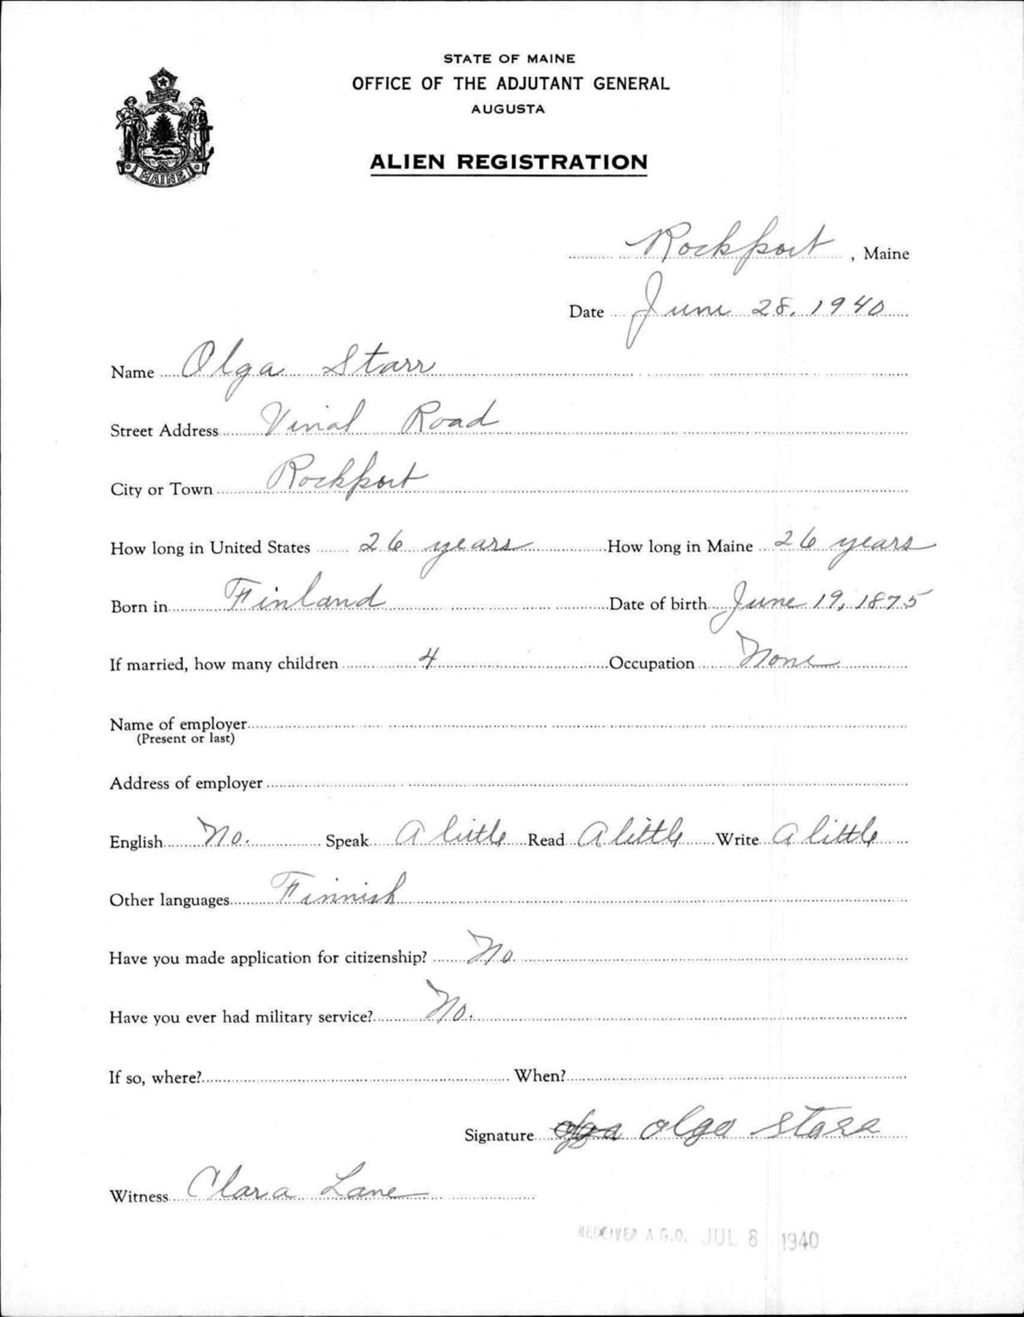 STATE OF MAINE
OFFICE OF THE ADJUTANT GENERAL
AUGUSTA
ALIEN REGISTRATION
MAINE
Rockport, Maine
Date June 28, 1940
Name Olga Starr
Street Address Vinal Road
City or Town Rockport
How long in United States 26 years How long in Maine 26 years
Born in Finland Date of birth June 19, 1875
If married, how many children 4 Occupation None
Name of employer
(Present or last)
Address of employer
English No. Speak A little Read A little Write A little
Other languages Finnish
Have you made application for citizenship? No.
Have you ever had military service? No.
If so, where? When?
Signature Olga Olga Starr
Witness Clara Lane
RECEIVED A.G.O. JUL 8 1940